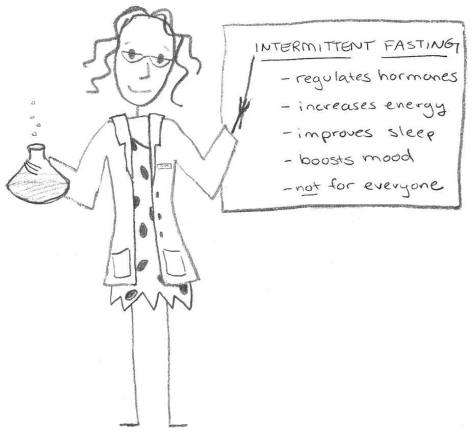 INTERMITTENT FASTING
- regulates hormones
- increases energy
- improves sleep
- boosts mood
- not for everyone